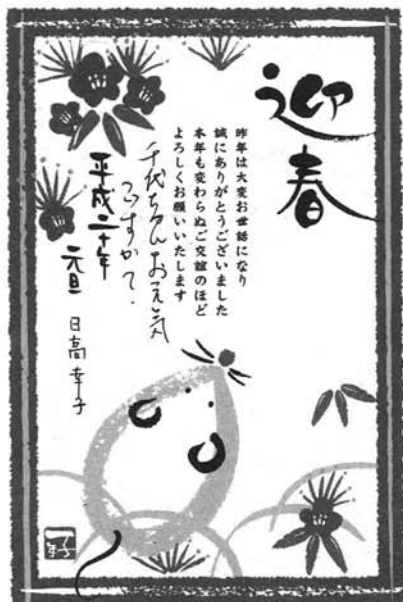 迎春
昨年は大変お世話になり
誠にありがとうございました
本年も変わらぬご交誼のほど
よろしくお願いいたします
千代ちゃんお元気
ですか？
平成二十年
元旦
日高幸子
子年